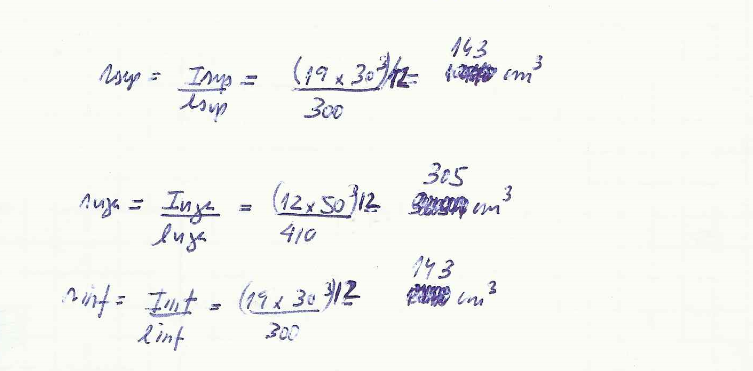 rsup = Isup/lsup = (19 x 30³)/12/300 = 143 cm³
rviga = Iviga/lviga = (12 x 50³)12/410 = 305 cm³
rinf = Iinf/linf = (19 x 30³)12/300 = 143 cm³